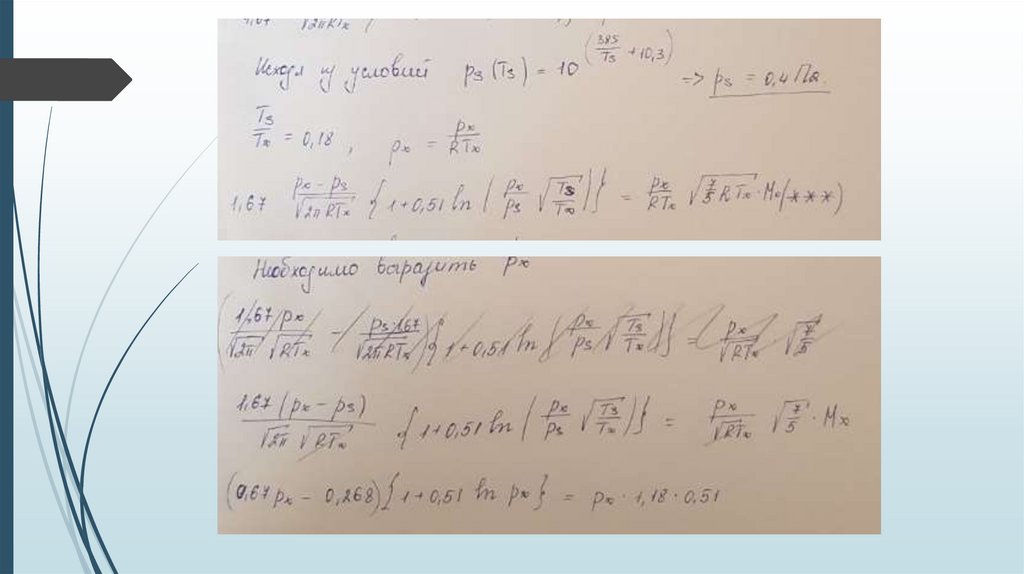 1,67 √2πRT∞
Исходя из условий p₃(T₃) = 10^(385/T₃ + 10,3) => p₃ = 0,4 Па.
T₃/T∞ = 0,18, ρ∞ = p∞/RT∞
1,67 (p∞ - p₃)/√2πRT∞ {1+0,51 ln(p∞/p₃ √T₃/T∞)} = p∞/RT∞ √7/5 RT∞ · M∞ (***)
Необходимо выразить p∞
(1,67 p∞/√2π √RT∞ - p₃·1,67/√2πRT∞) {1+0,51 ln(p∞/p₃ √T₃/T∞)} = p∞/√RT∞ √7/5
1,67 (p∞ - p₃)/√2π √RT∞ · {1+0,51 ln(p∞/p₃ √T₃/T∞)} = p∞/√RT∞ √7/5 · M∞
(0,67 p∞ - 0,268) {1+0,51 ln p∞} = p∞ · 1,18 · 0,51